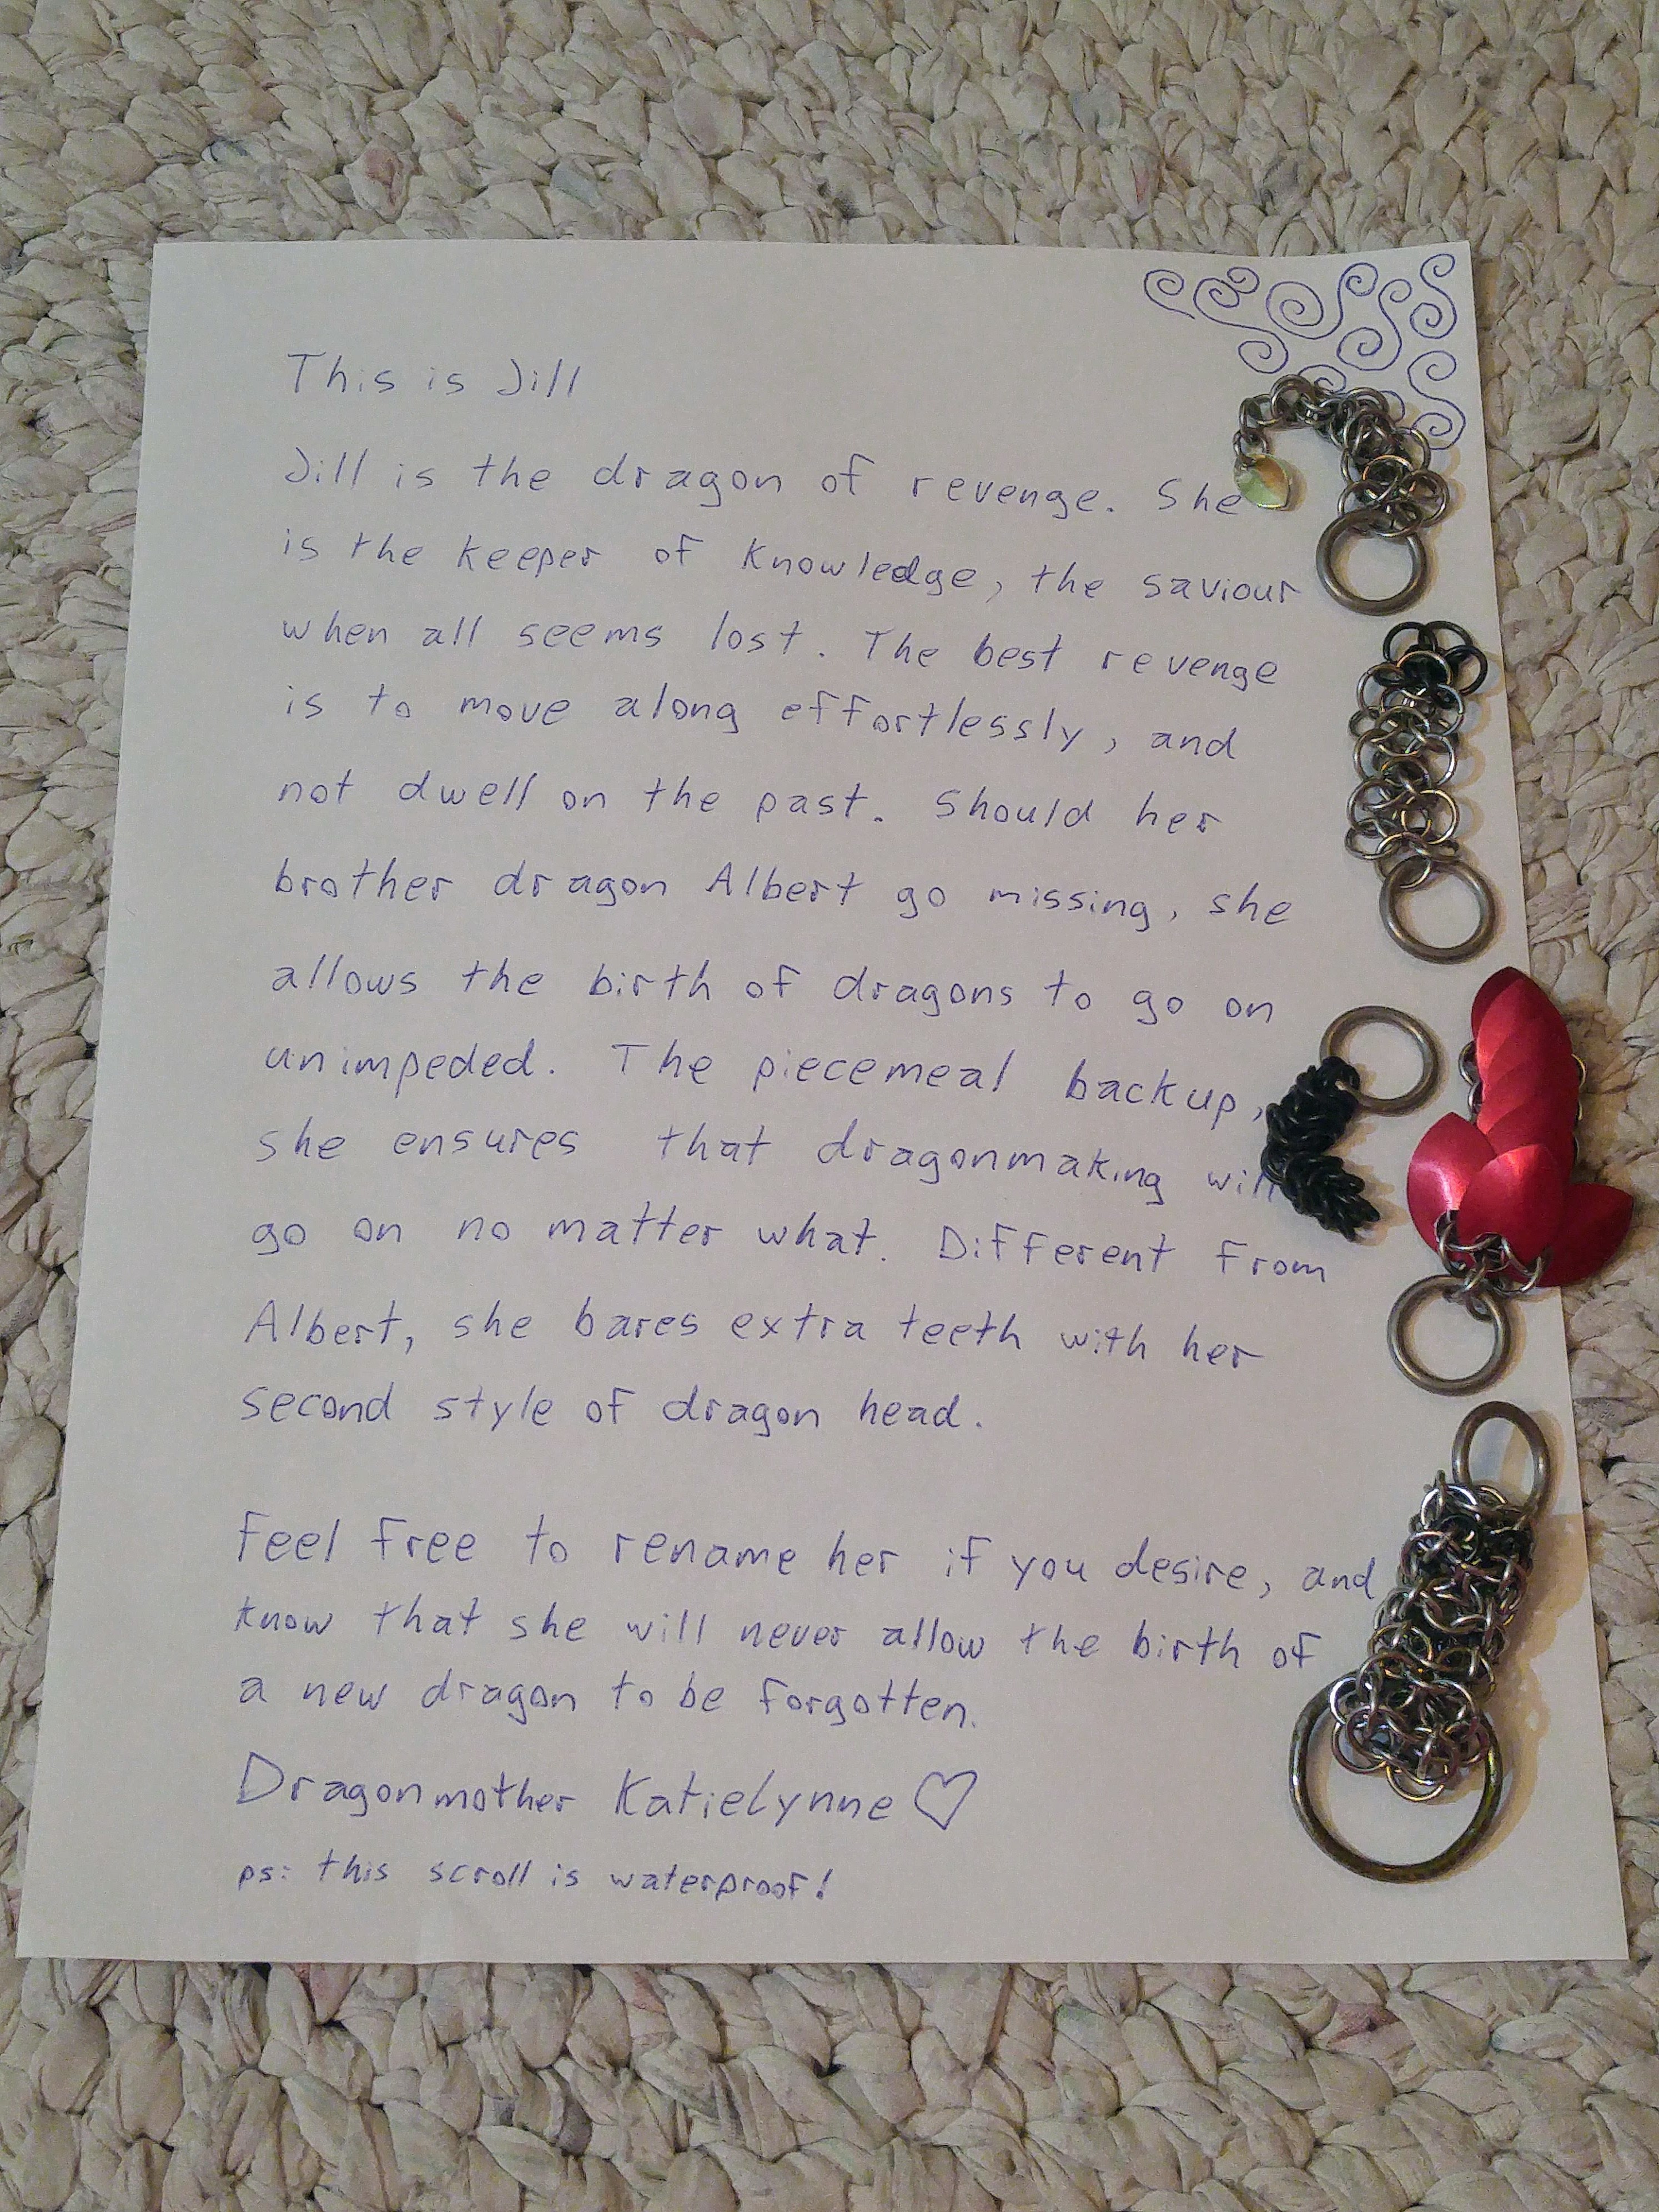 This is Jill
Jill is the dragon of revenge. She
is the keeper of knowledge, the saviour
when all seems lost. The best revenge
is to move along effortlessly, and
not dwell on the past. Should her
brother dragon Albert go missing, she
allows the birth of dragons to go on
unimpeded. The piecemeal backup,
she ensures that dragonmaking will
go on no matter what. Different from
Albert, she bares extra teeth with her
second style of dragon head.
Feel free to rename her if you desire, and
know that she will never allow the birth of
a new dragon to be forgotten.
Dragonmother Katielynne ♡
ps: this scroll is waterproof!